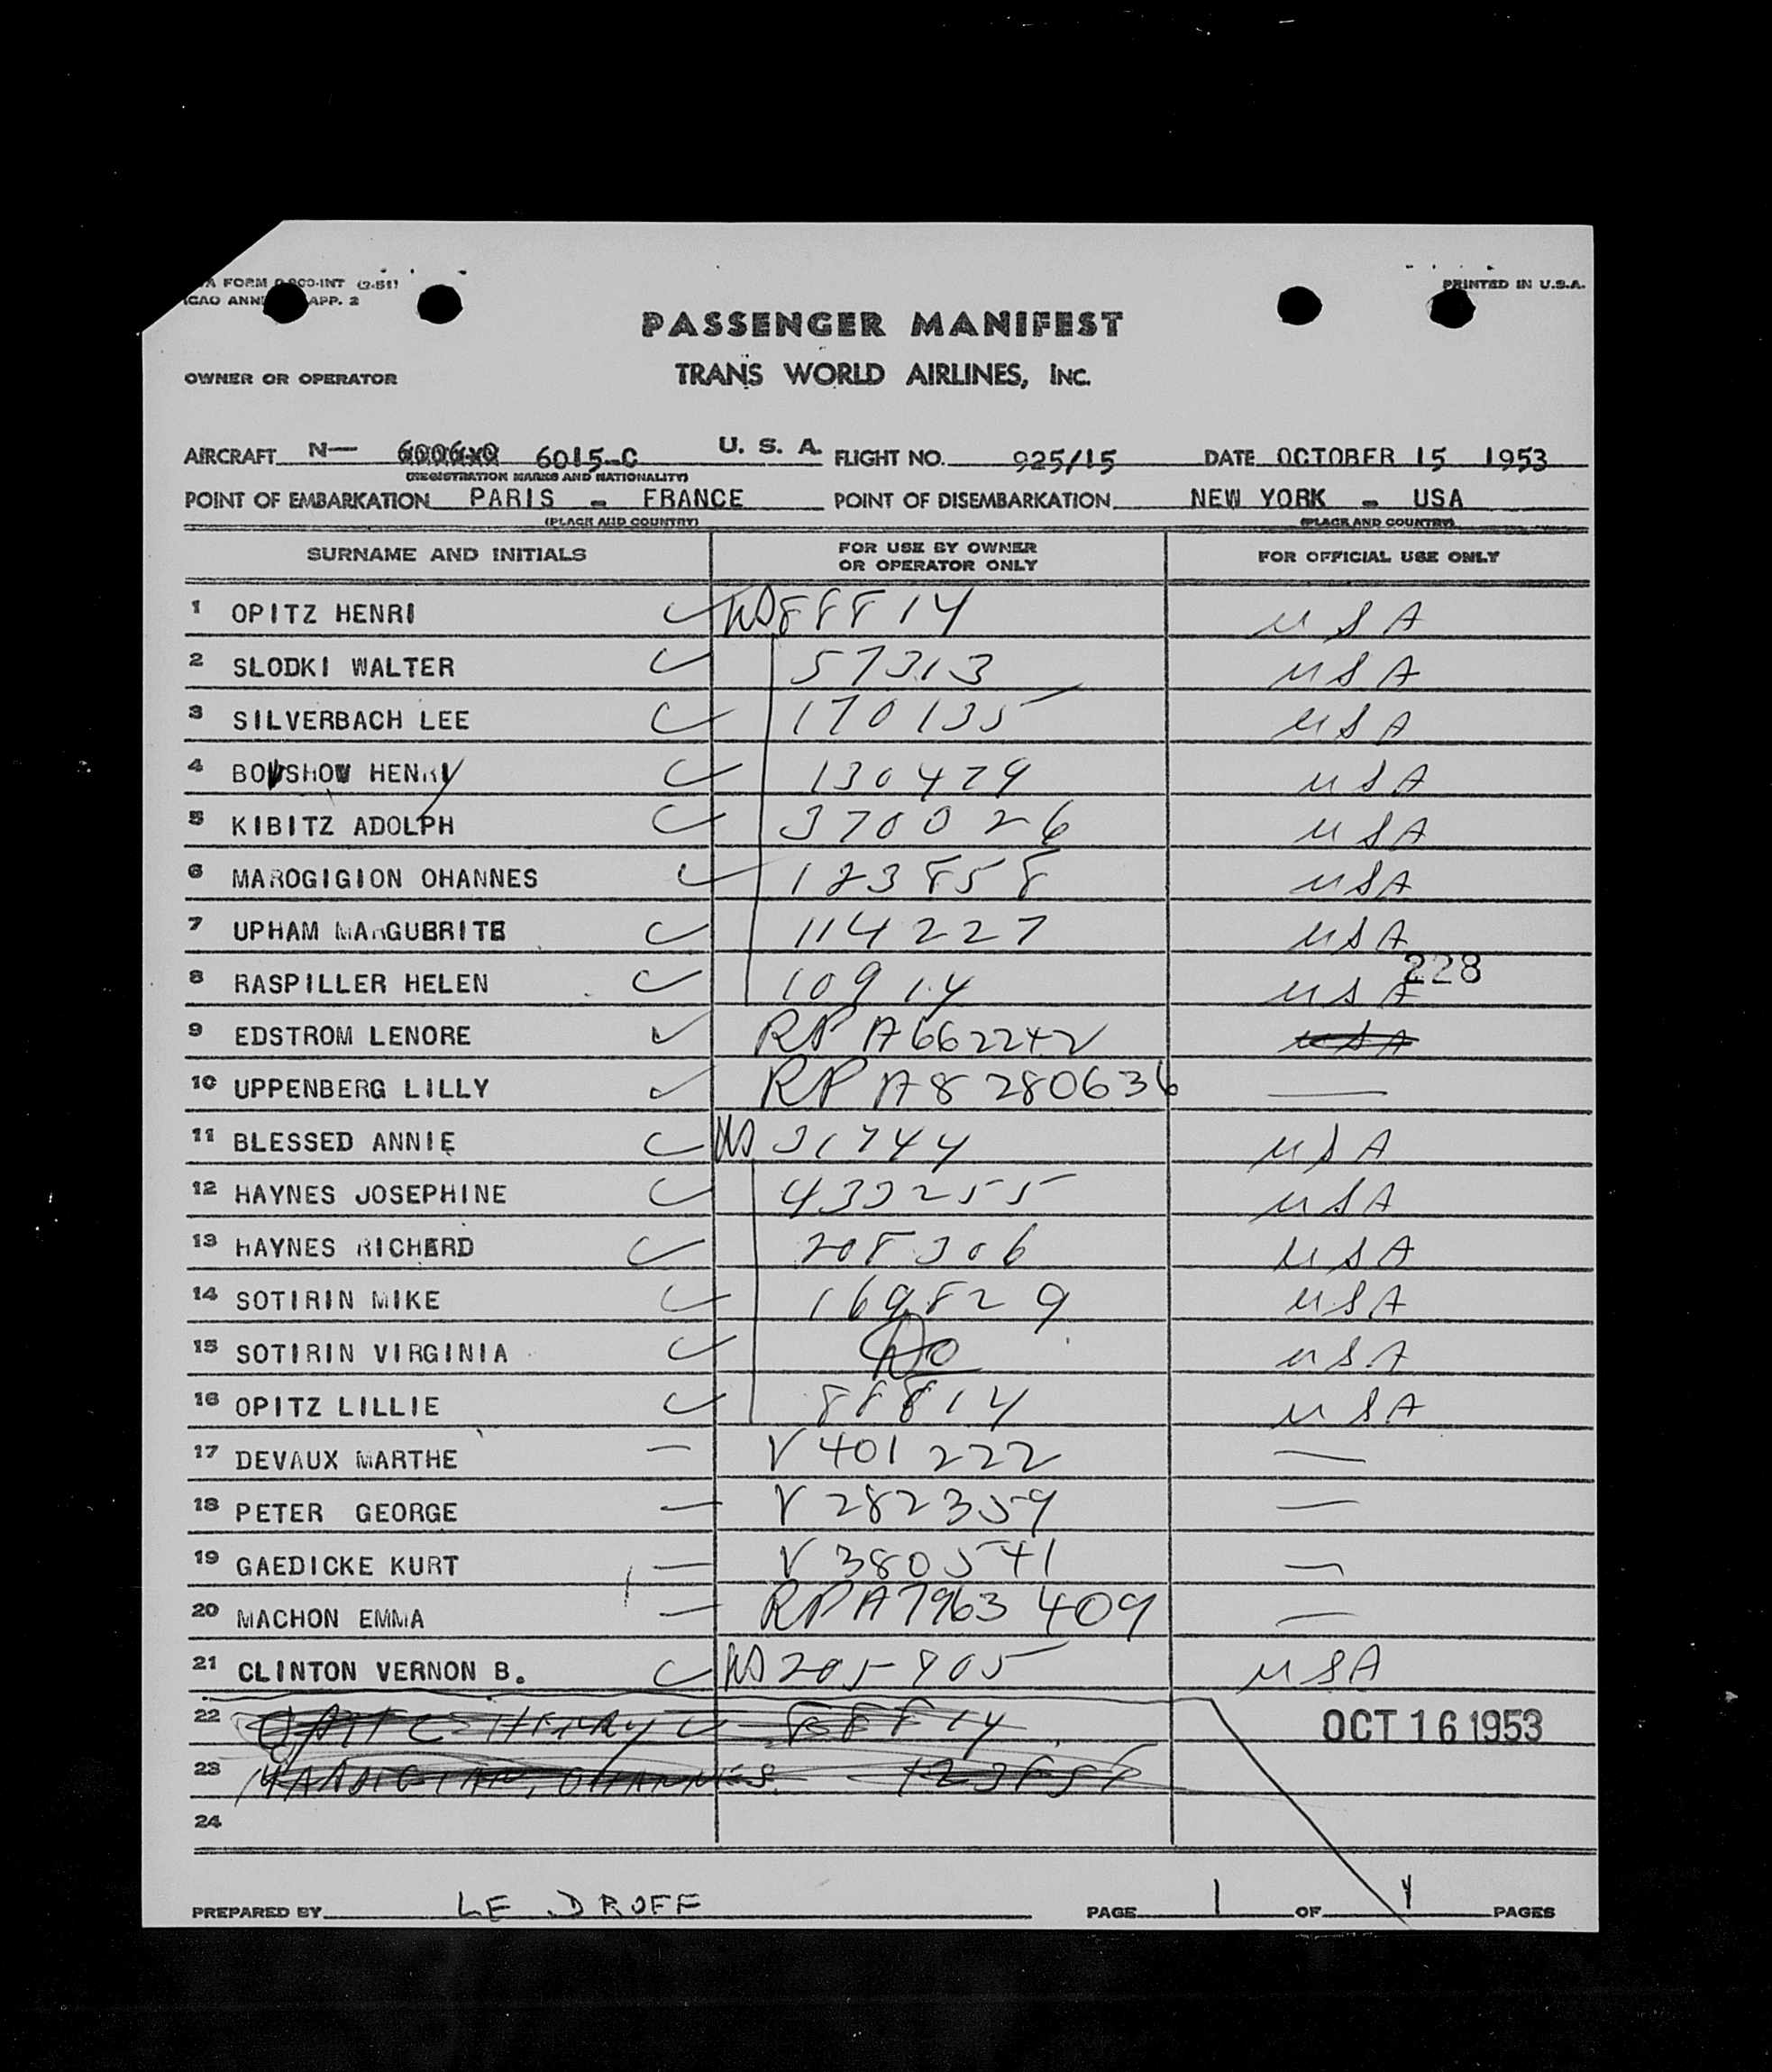 FORM INT (2-51)
ICAO ANN APP. 2
PRINTED IN U.S.A.
PASSENGER MANIFEST
OWNER OR OPERATOR TRANS WORLD AIRLINES, INC.
AIRCRAFT N— 6015-C U. S. A. FLIGHT NO. 925/15 DATE OCTOBER 15 1953
(REGISTRATION MARKS AND NATIONALITY)
POINT OF EMBARKATION PARIS - FRANCE POINT OF DISEMBARKATION NEW YORK - USA
(PLACE AND COUNTRY) (PLACE AND COUNTRY)
SURNAME AND INITIALS FOR USE BY OWNER OR OPERATOR ONLY FOR OFFICIAL USE ONLY
1 OPITZ HENRI 88814 USA
2 SLODKI WALTER 57313 USA
3 SILVERBACH LEE 170135 USA
4 HENRY 130479 USA
5 KIBITZ ADOLPH 370026 USA
6 MAROGIGION OHANNES 123858 USA
7 UPHAM MARGUERITE 114227 USA
228
8 RASPILLER HELEN 10914 USA
9 EDSTROM LENORE RP A662242 USA
10 UPPENBERG LILLY RP A8280636 —
11 BLESSED ANNIE 31744 USA
12 HAYNES JOSEPHINE 433255 USA
13 HAYNES RICHERD 208306 USA
14 SOTIRIN MIKE 169829 USA
15 SOTIRIN VIRGINIA Do USA
16 OPITZ LILLIE 88814 USA
17 DEVAUX MARTHE — V 401222 —
18 PETER GEORGE — V 282359 —
19 GAEDICKE KURT — V 380541 —
20 MACHON EMMA — RP A7963409 —
21 CLINTON VERNON B. 205905 USA
22 HENRY 88814
OCT 16 1953
23 OHANNES 123858
24
PREPARED BY LE DROFF PAGE 1 OF 4 PAGES